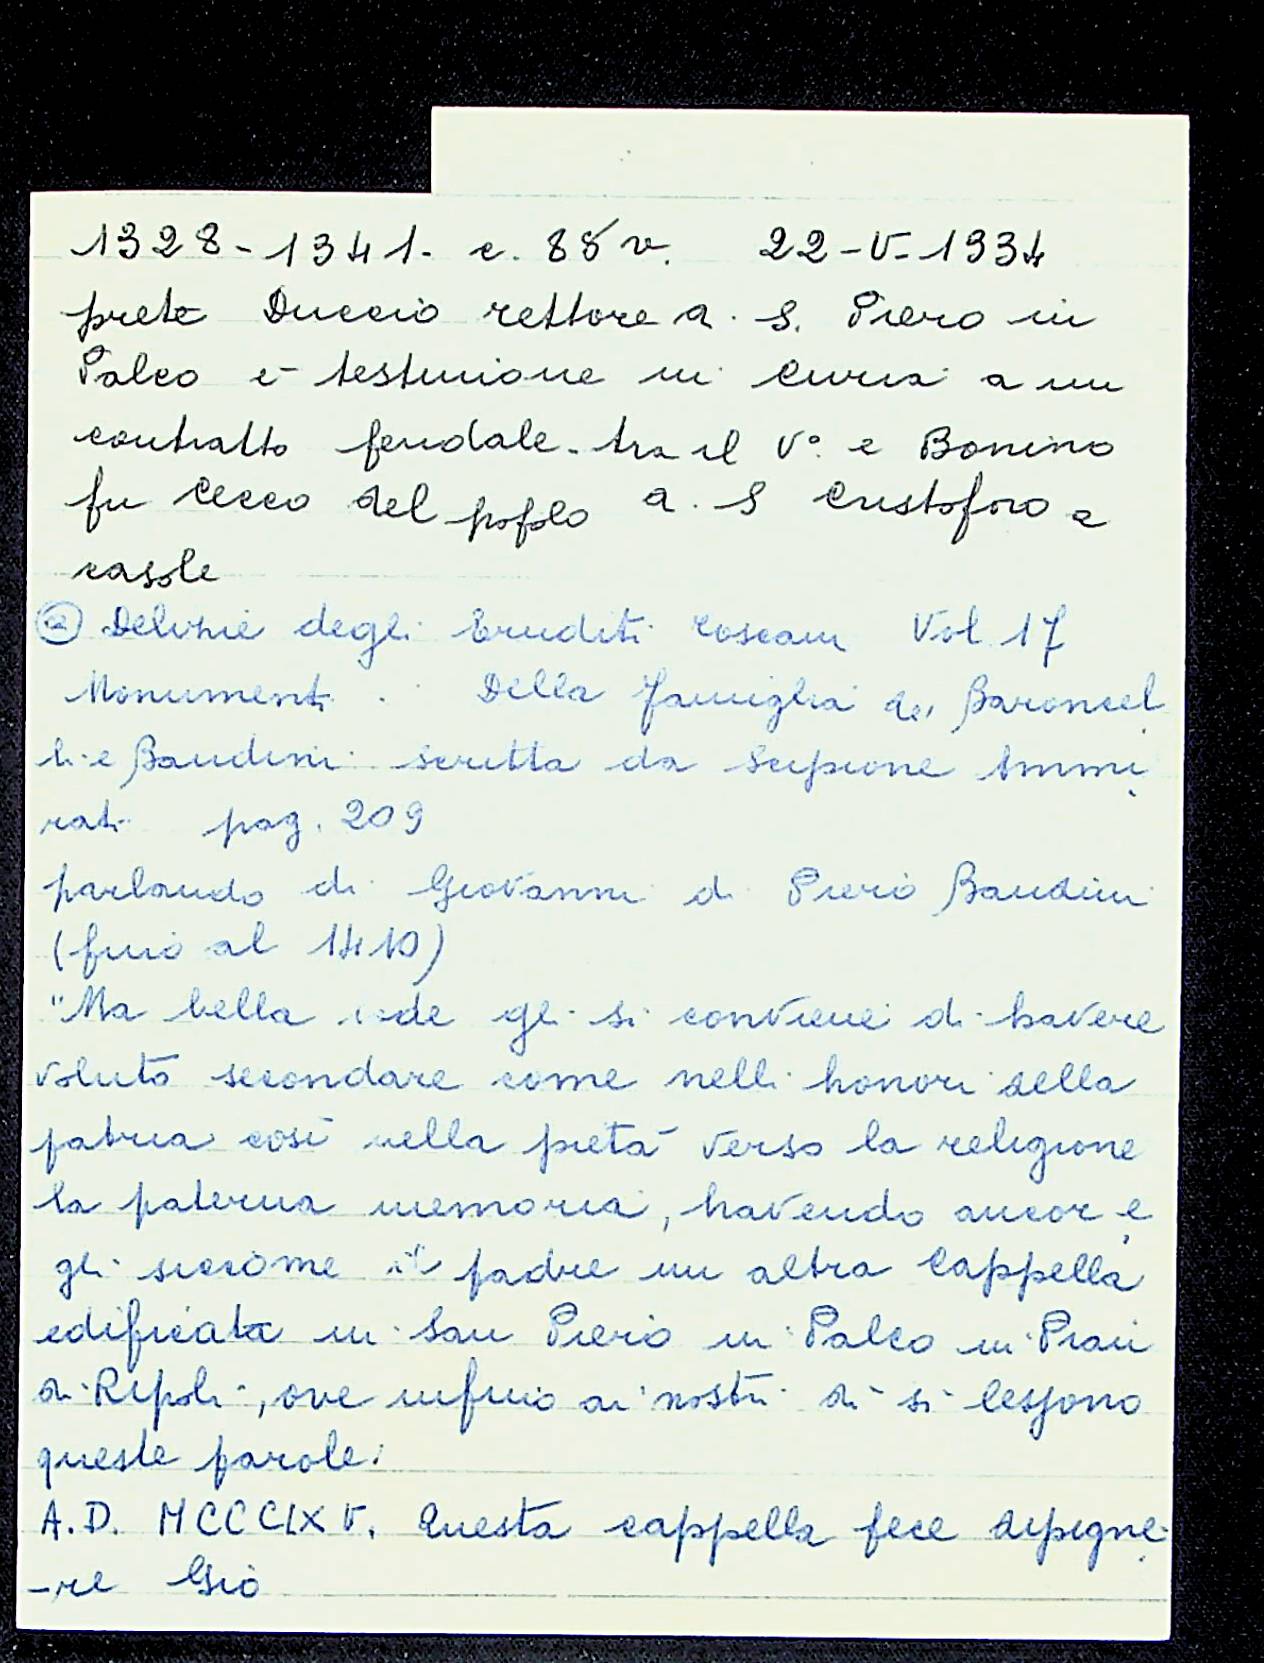 1328-1341. c. 88 v. 22-V-1934
prete Duccio rettore a. S. Piero in
Palco è testimone in Curia a un
contratto feudale tra il V° e Bonino
fu Cecco del popolo a. S Cristoforo a
casole
Delizie degli Eruditi toscani Vol 17
Monumenti. Della famiglia de' Baroncel
li e Bandini scritta da Scipione Ammi
rati pag. 209
parlando di Giovanni di Piero Bandini
(fino al 1410)
"Ma bella lode gli si conviene di havere
voluto secondare come nelli honori della
patria così nella pietà verso la religione
la paterna memoria, havendo ancor e
gli siccome il padre un altra Cappella
edificata in San Piero in Palco in Pian
di Ripoli, ove infino ai nostri dì si leggono
queste parole:
A.D. MCCCLXV. Questa cappella fece dipigne-
-re Gio